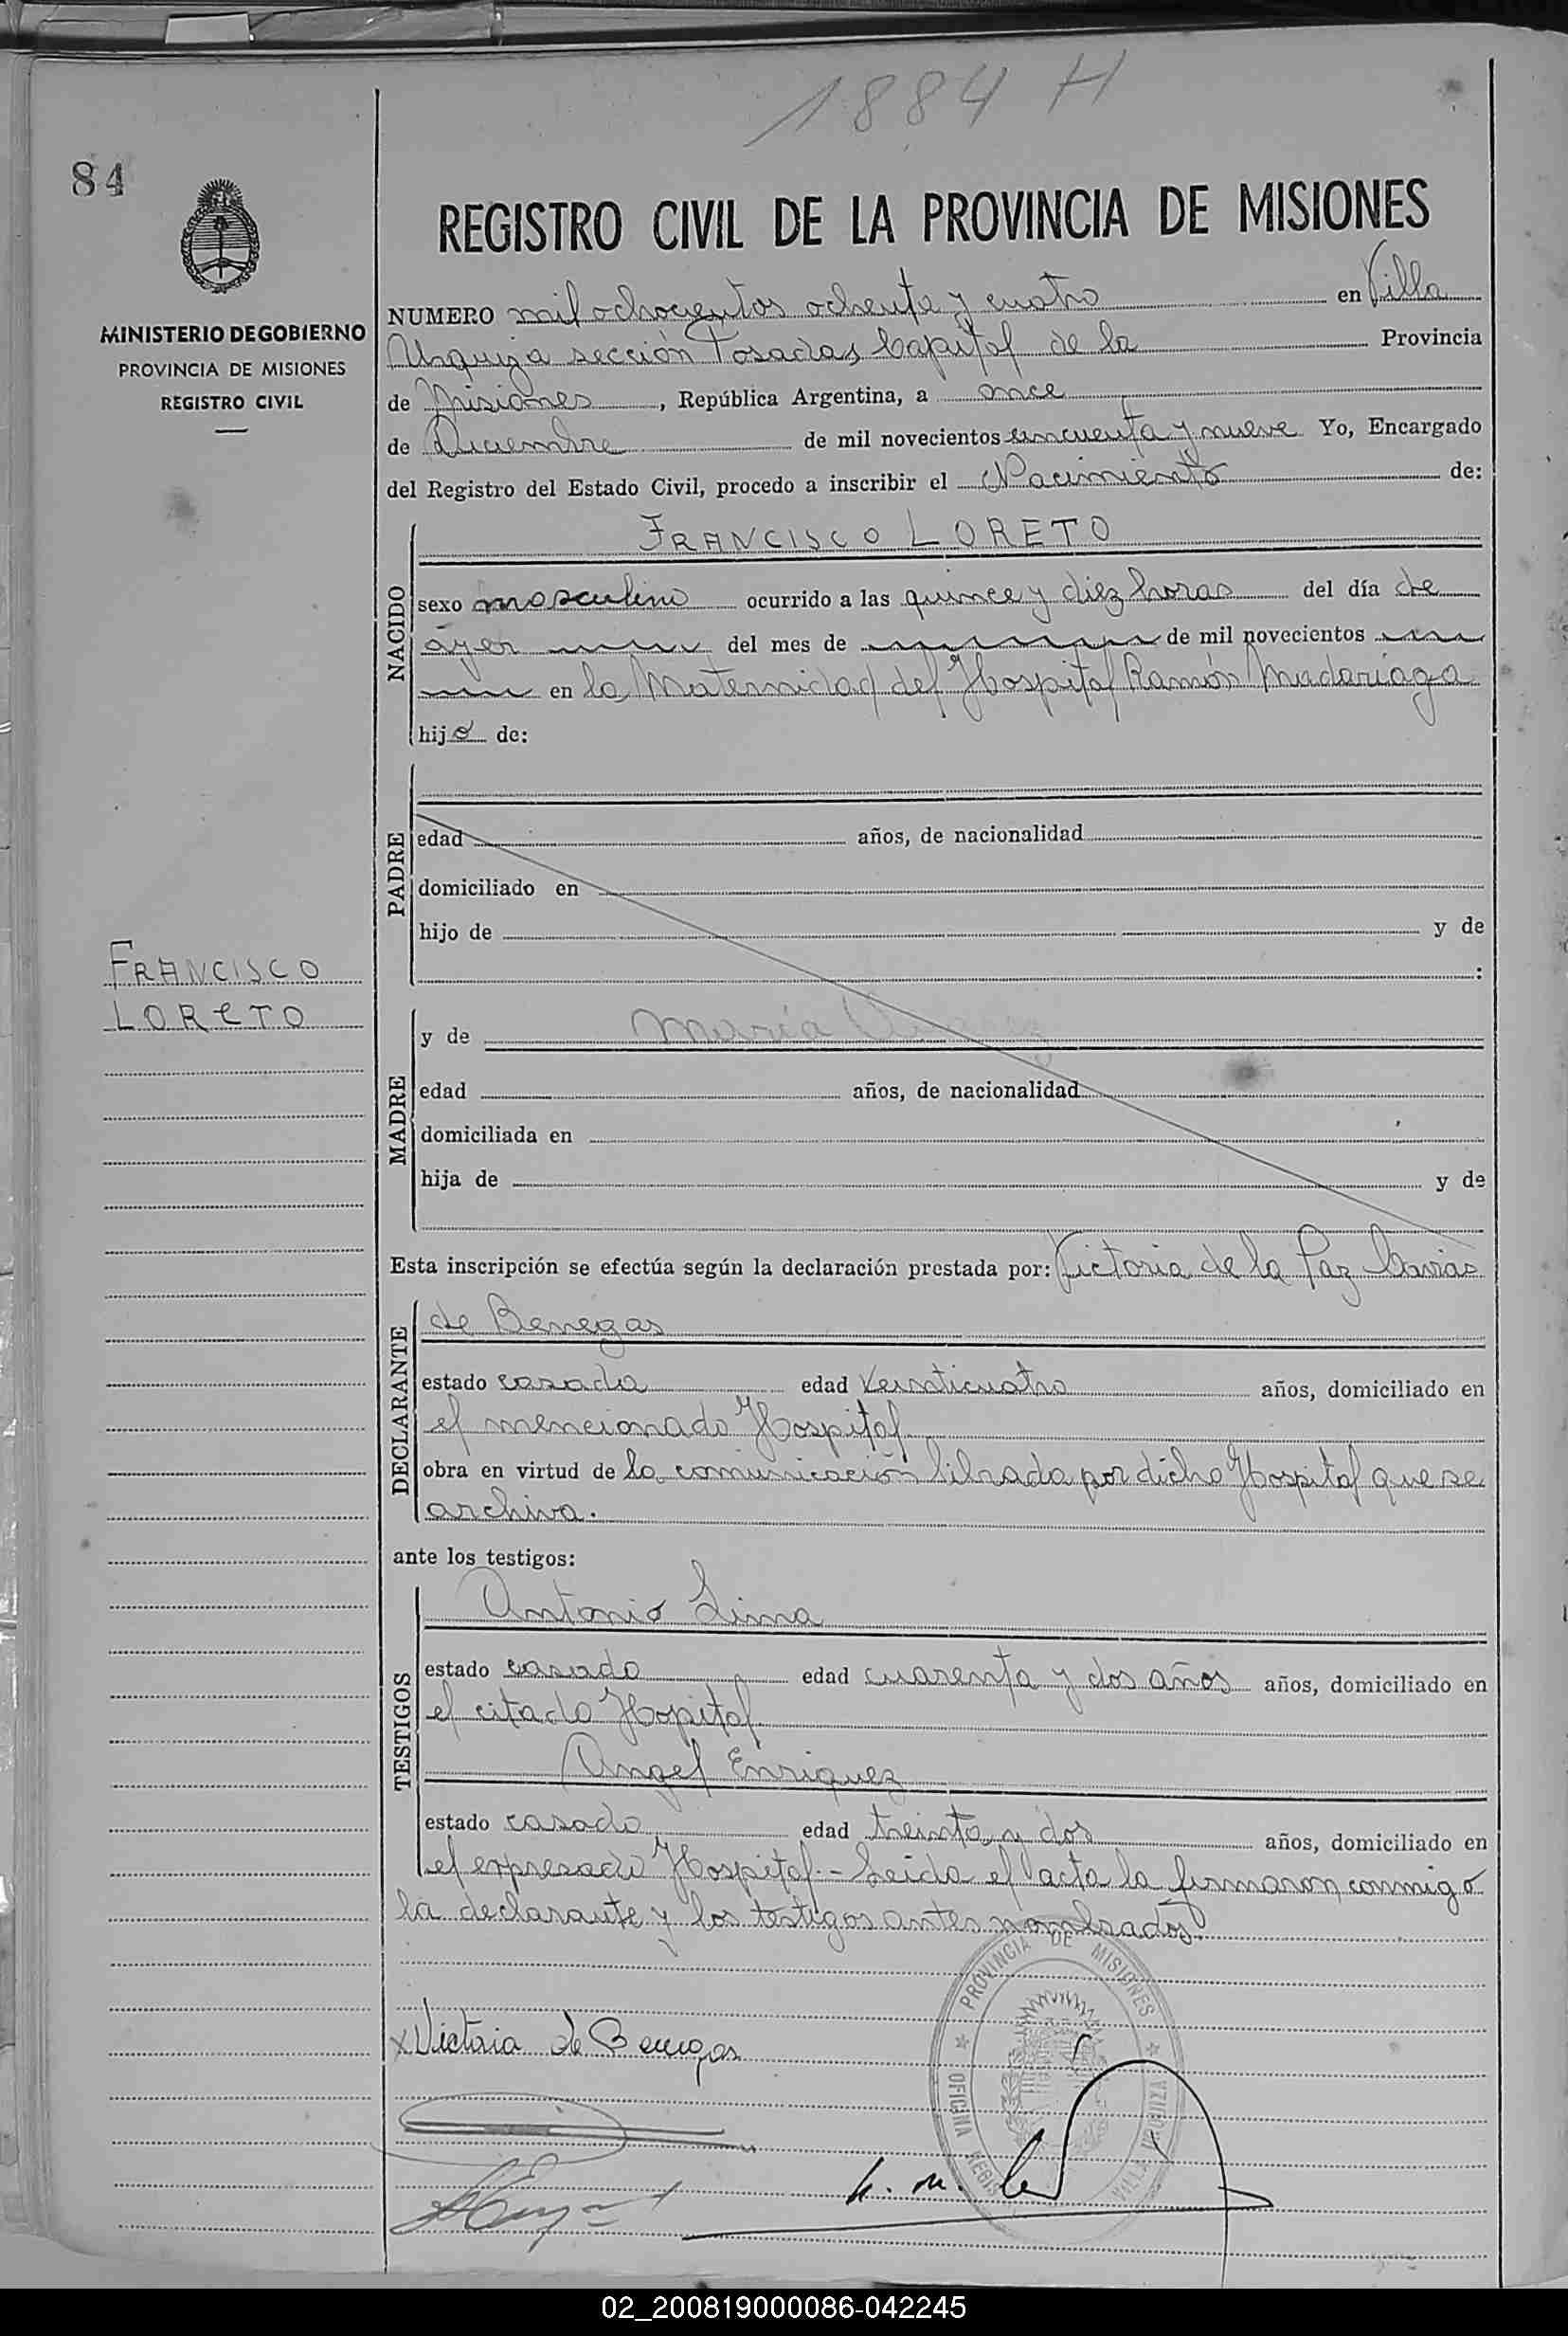 1884 H
84
REGISTRO CIVIL DE LA PROVINCIA DE MISIONES
MINISTERIO DE GOBIERNO
PROVINCIA DE MISIONES
REGISTRO CIVIL
NUMERO mil ochocientos ochenta y cuatro en Villa
Urquiza sección Posadas Capital de la Provincia
de Misiones, República Argentina, a once
de Diciembre de mil novecientos cincuenta y nueve Yo, Encargado
del Registro del Estado Civil, procedo a inscribir el Nacimiento de:
NACIDO
FRANCISCO LORETO
sexo masculino ocurrido a las quince y diez horas del día de
ayer del mes de de mil novecientos
en la Maternidad del Hospital Ramón Madariaga
hijo de:
PADRE
edad años, de nacionalidad
domiciliado en
hijo de y de
:
FRANCISCO
LORETO
MADRE
y de María
edad años, de nacionalidad
domiciliada en
hija de y de
Esta inscripción se efectúa según la declaración prestada por: Victoria de la Paz
DECLARANTE
de Benegas
estado casada edad veinticuatro años, domiciliado en
el mencionado Hospital
obra en virtud de la comunicación librada por dicho Hospital que se
archiva.
ante los testigos:
TESTIGOS
Antonio Lima
estado casado edad cuarenta y dos años años, domiciliado en
el citado Hospital
Angel Enriquez
estado casado edad treinta y dos años, domiciliado en
el expresado Hospital.- Leida el acta la firmaron conmigo
la declarante y los testigos antes nombrados.
PROVINCIA DE MISIONES
OFICINA REGIS
VILLA URQUIZA
x Victoria de Benegas
02_200819000086-042245